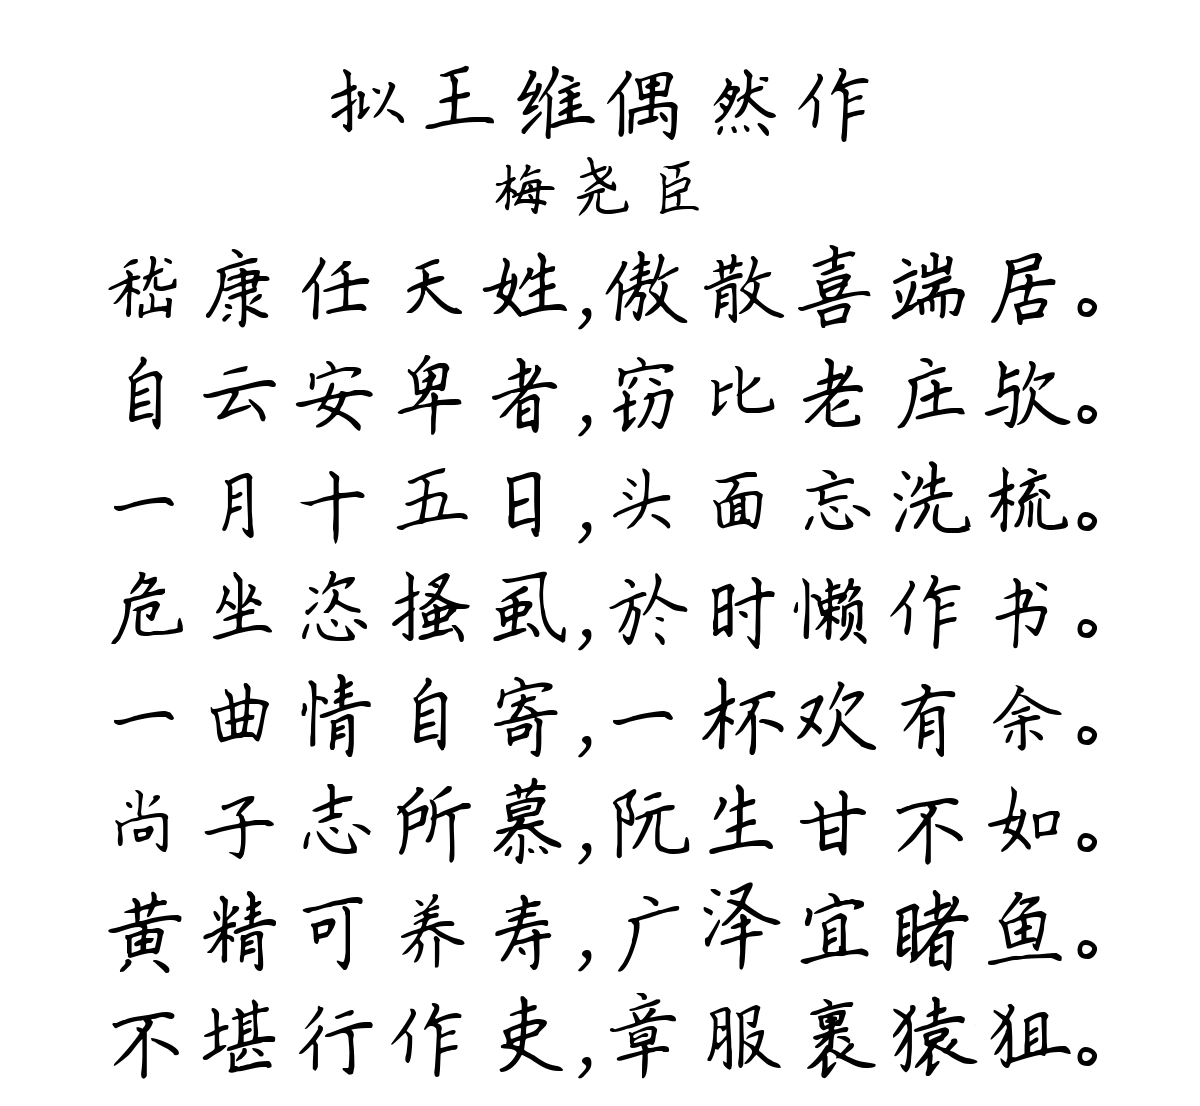 拟王维偶然作
梅尧臣
嵇康任天姓,傲散喜端居。
自云安卑者,窃比老庄欤。
一月十五日,头面忘洗梳。
危坐恣搔虱,於时懒作书。
一曲情自寄,一杯欢有余。
尚子志所慕,阮生甘不如。
黄精可养寿,广泽宜睹鱼。
不堪行作吏,章服裹猿狙。